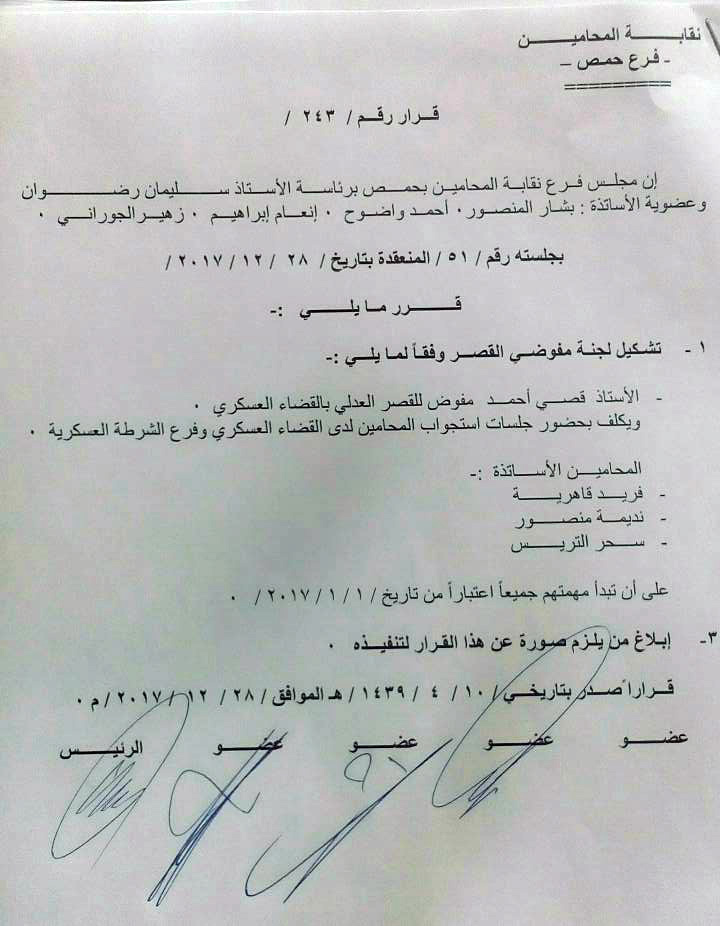 نقابة المحامين
- فرع حمص -
قرار رقم / ٢٤٣ /
إن مجلس فرع نقابة المحامين بحمص برئاسة الأستاذ سليمان رضوان
وعضوية الأساتذة : بشار المنصور ٠ أحمد واضوح ٠ إنعام إبراهيم ٠ زهير الجوراني ٠
بجلسته رقم / ٥١ / المنعقدة بتاريخ / ٢٨ / ١٢ / ٢٠١٧ /
قرر ما يلي :-
١ - تشكيل لجنة مفوضي القصر وفقاً لما يلي :-
- الأستاذ قصي أحمد مفوض للقصر العدلي بالقضاء العسكري ٠
ويكلف بحضور جلسات استجواب المحامين لدى القضاء العسكري وفرع الشرطة العسكرية ٠
المحامين الأساتذة :-
- فريد قاهرية
- نديمة منصور
- سحر التريس
على أن تبدأ مهمتهم جميعاً اعتباراً من تاريخ / ١ / ١ / ٢٠١٧ / ٠
٣- إبلاغ من يلزم صورة عن هذا القرار لتنفيذه ٠
قراراً صدر بتاريخي / ١٠ / ٤ / ١٤٣٩ / هـ الموافق / ٢٨ / ١٢ / ٢٠١٧ / م ٠
عضو عضو عضو عضو الرئيس